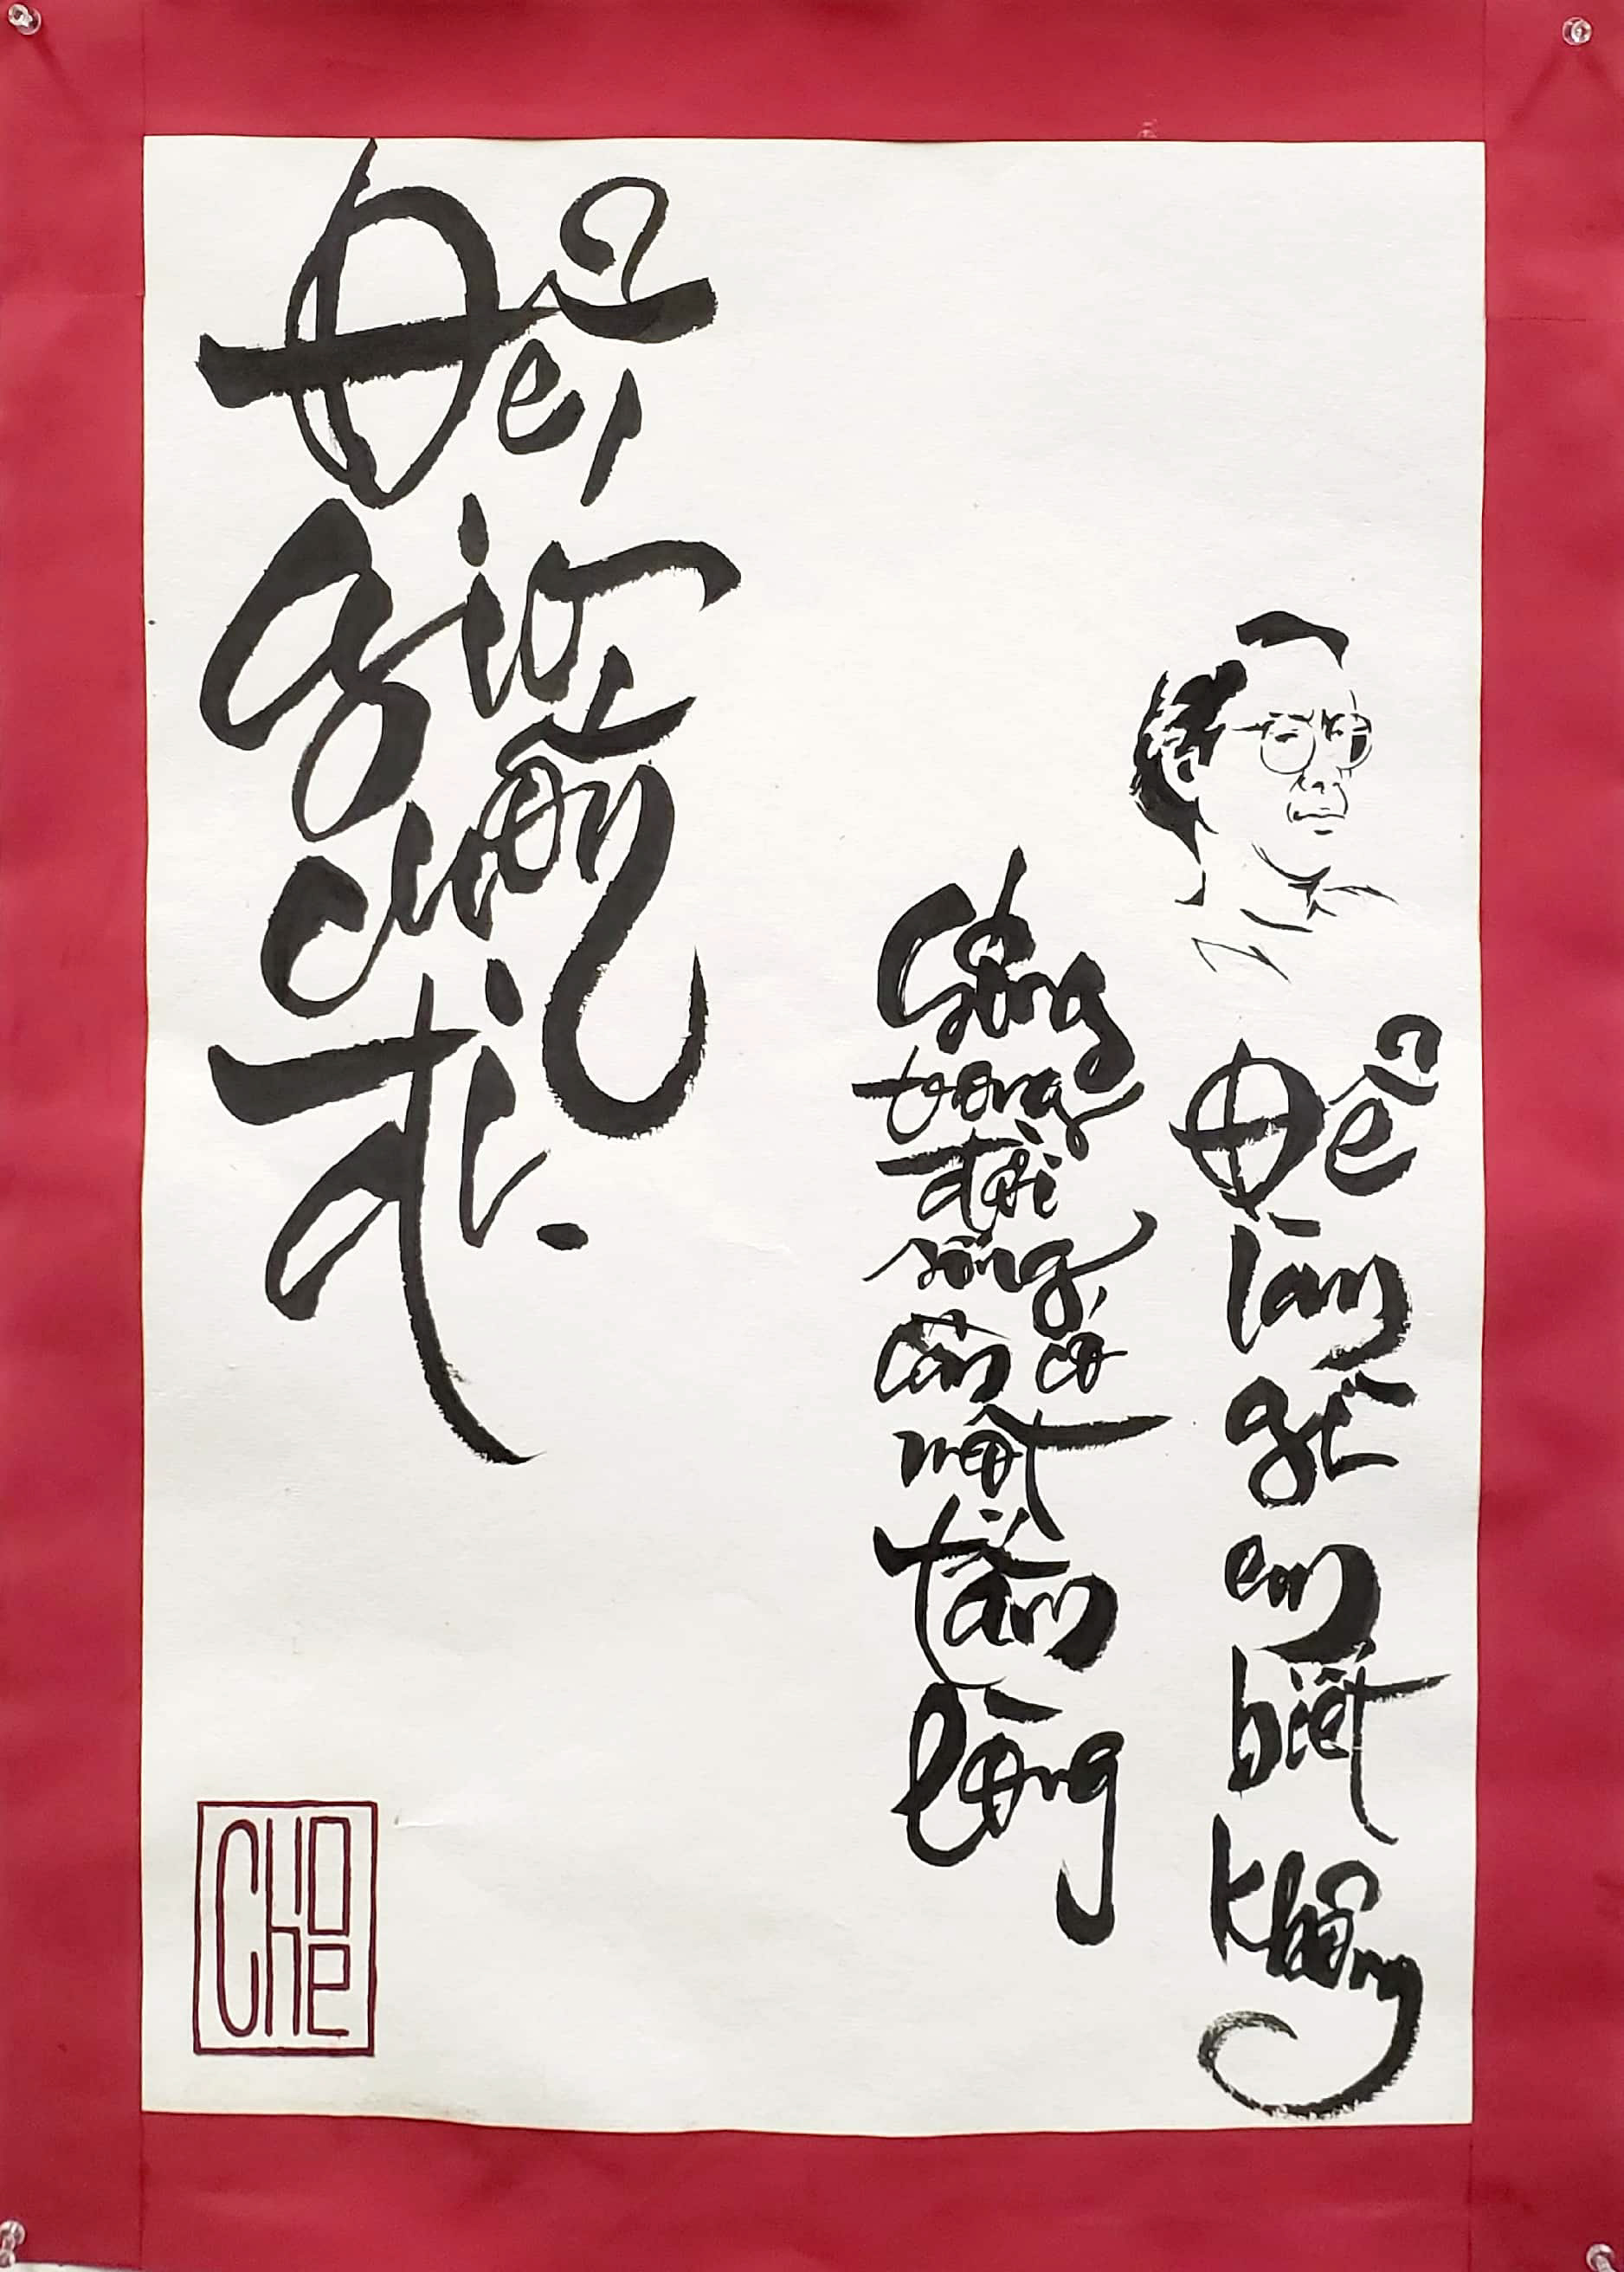 Sống
trong
đời
sống
cần có
một
tấm
lòng
Để
làm
gì
em
biết
không
Để
gió
cuốn
đi.
CHOE